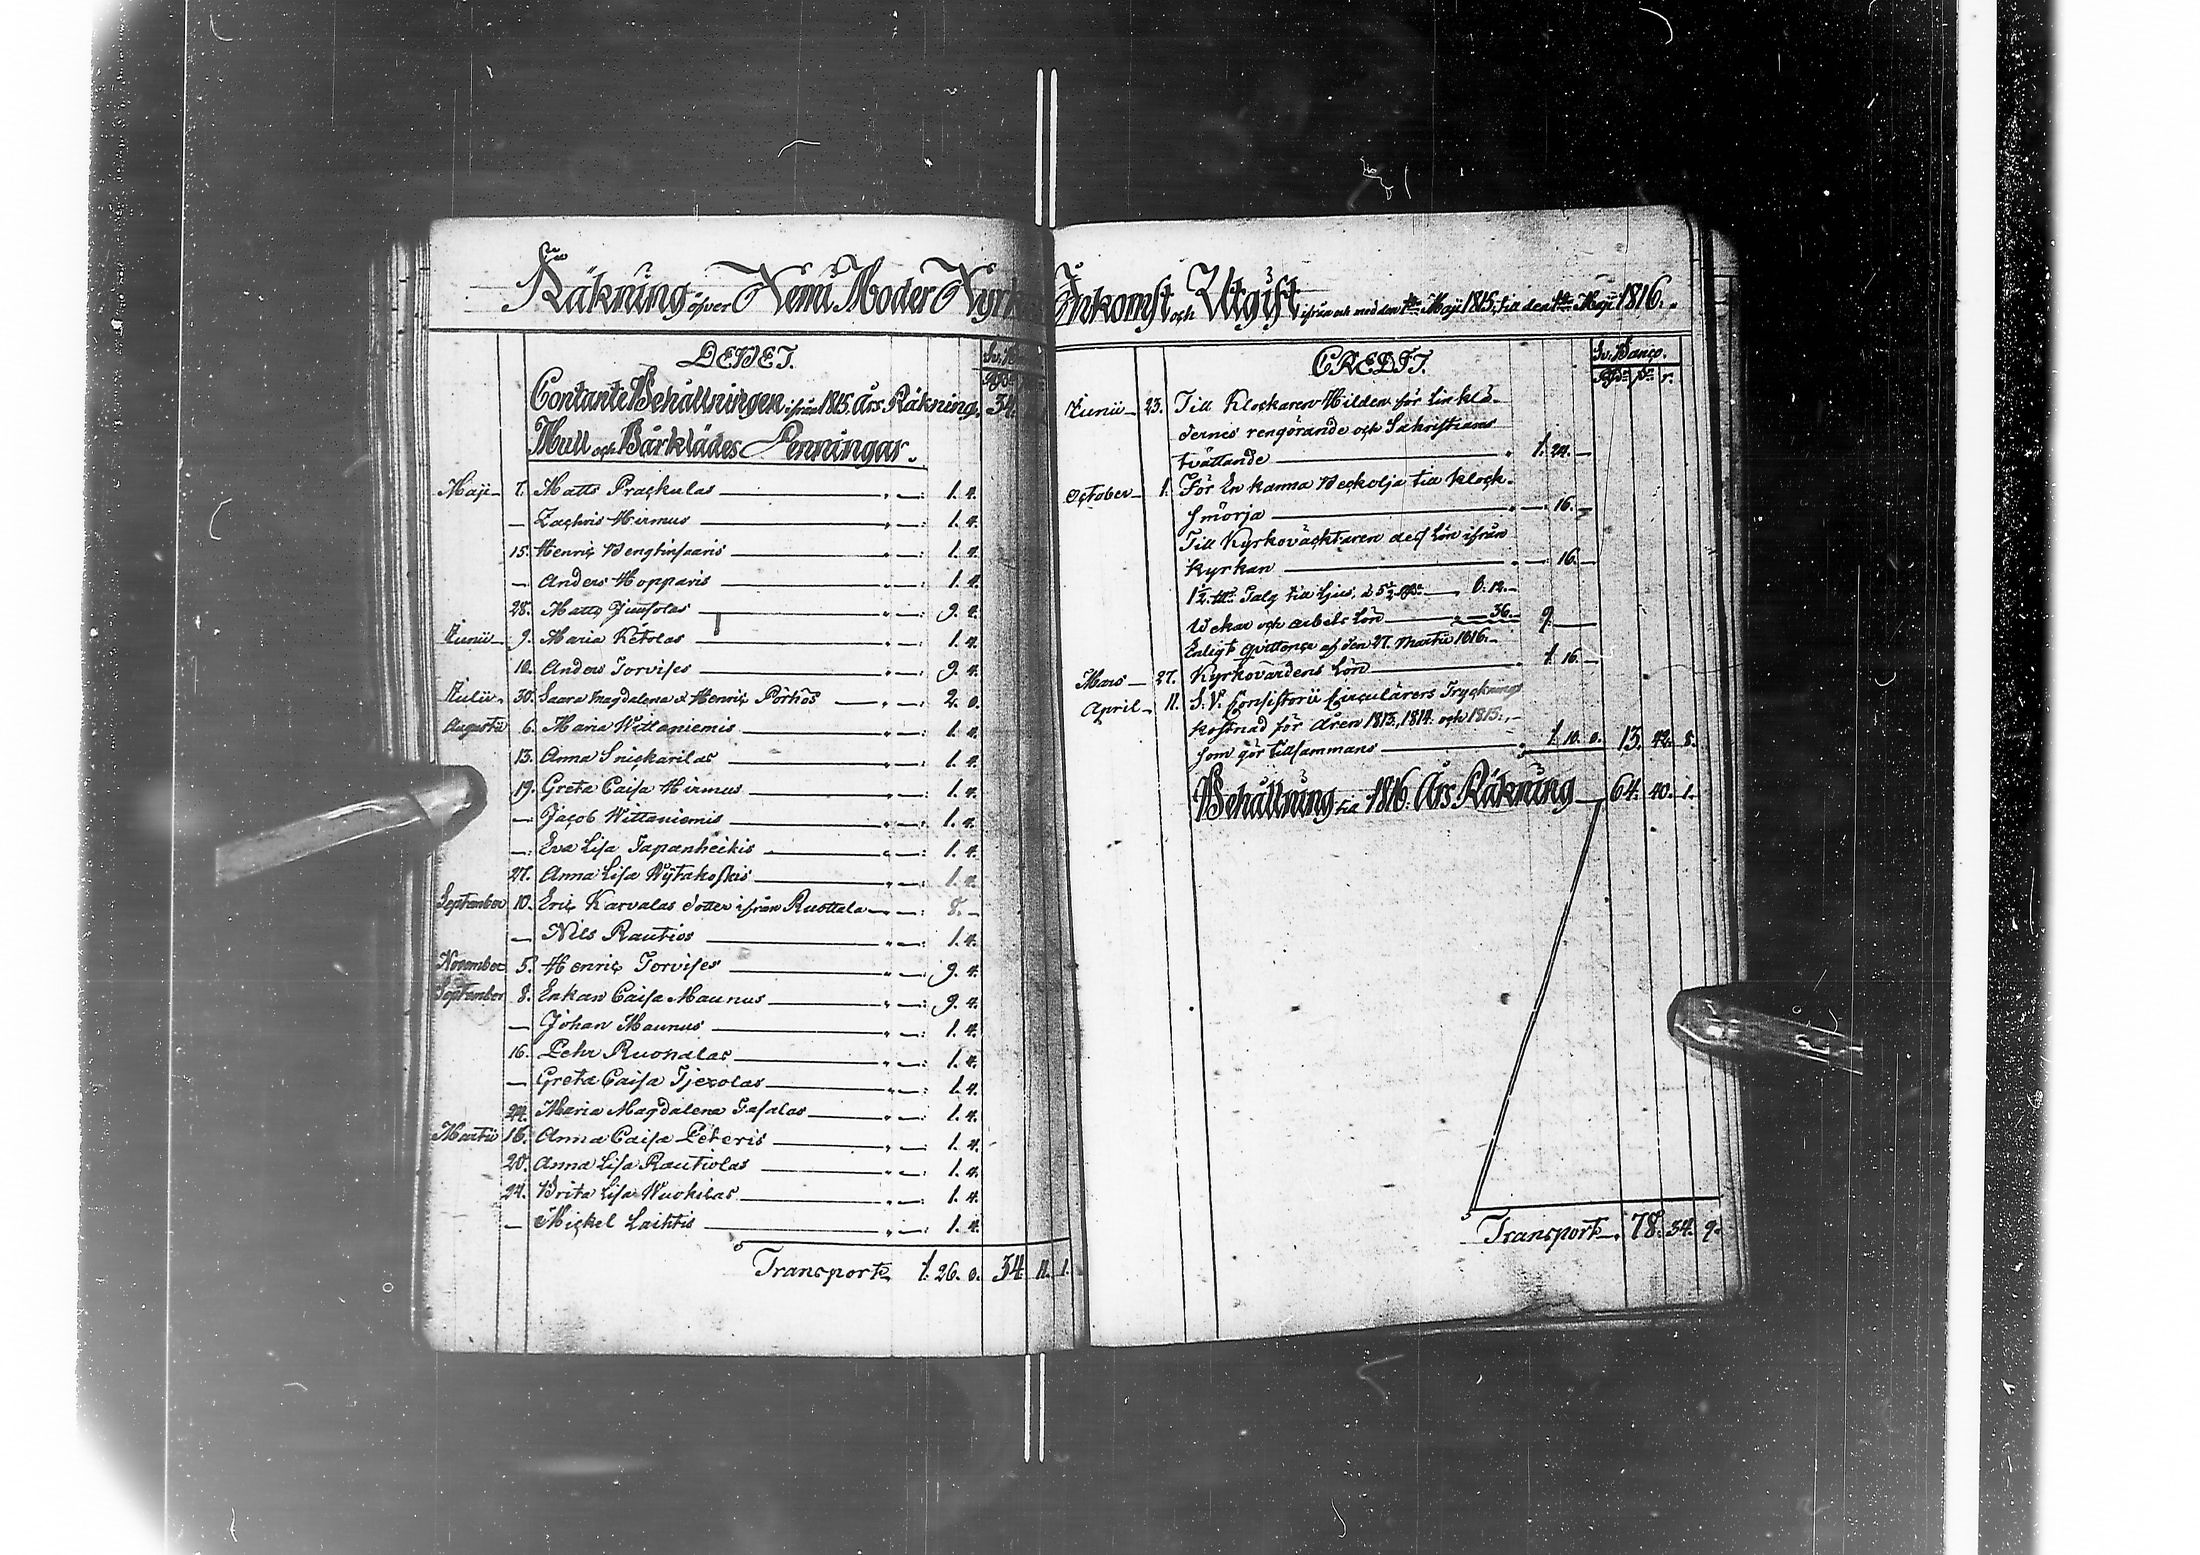 Räkning öfver Kemi Moder Kyrk
DEBET.
Contante Behållningen ifrån 1815. Års Räkning. 34.
Mull och Bårklädes Penningar.
Maji 7. Matts Prackulas 1. 4.
— Zachris Hirmus 1. 4.
15. Henric Bengtinsaaris 1. 4.
— Anders Hopparis 1. 4.
28. Matts 9. 4.
Junii 9. Maria Ketolas 1. 4.
10. Anders Torvises 9. 4.
Julii 30. Saara Magdalena & Henric Pörhös 2. 8.
Augusti 6. Maria Wittaniemis 1. 4.
13. Anna Snickarilas 1. 4.
19. Greta Caisa Hirmus 1. 4.
— Jacob Wittaniemis 1. 4.
— Eva Lisa Tapanheikis 1. 4.
27. Anna Lisa Nytakoskis 1. 4.
September 10. Eric Karvalas dotter ifrån Ruottala 8. —
— Nils Rautios 1. 4.
November 5. Henric Torvises 9. 4.
September 8. Enkan Caisa Maunus 9. 4.
— Johan Maunus 1. 4.
16. Pehr Ruonalas 1. 4.
— Greta Caisa 1. 4.
24. Maria Magdalena 1. 4.
Martii 16. Anna Caisa Peteris 1. 4.
20. Anna Lisa Rautiolas 1. 4.
24. Brita Lisa Wuokilas 1. 4.
— Mickel Laihtis 1. 4.
Transport 1. 26. 8. 34. 11. 1.
Inkomst och Utgift ifrån och med den 1ste Maji 1815, till den 1ste Maji 1816.
CREDIT. Sv. Banco.
Rdr sk. r.
Junii 23. Till Klockaren Hildén för Linklä-
dernes rengörande och Sakristians
tvättande 1. 24. —
October 1. För En kanna Beckolja till klock-
smörja 16. —
Till Kyrkoväcktaren dess Lön ifrån
Kyrkan 16. —
1½ Talg till Ljus, à 5½ Rdr 8. 12.
Wekar och arbets Lön 36. 9. —
Enligt qvittence af den 27. Martii 1816.
Mars 27. Kyrkovärdens Lön 1. 16. —
April 11. S. V. Consistorii Circulärers Trycknings
kostnad för Åren 1813, 1814. och 1815.,
som gör tillsammans 1. 10. 8. 13. 42. 8.
Behållning till 1816. Års Räkning 64. 40. 1.
Transport 78. 34. 9.